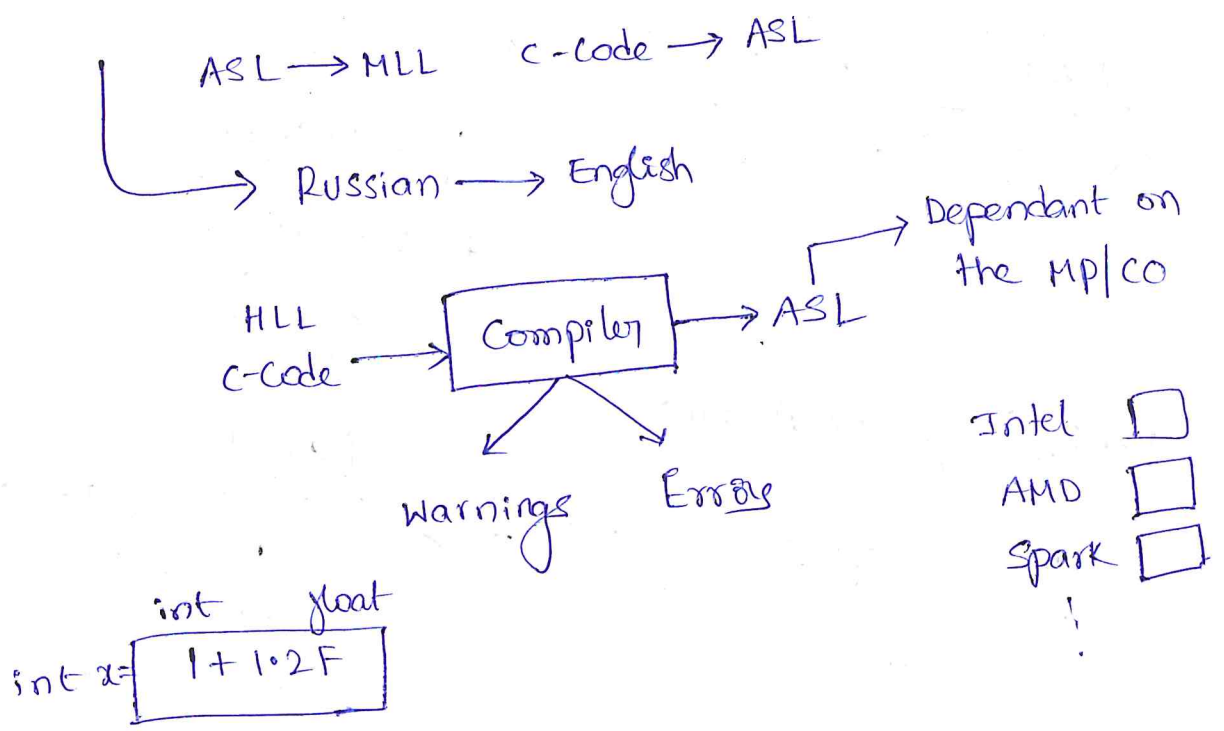 ASL → MLL   C-Code → ASL
Russian → English
Dependant on
the MP/CO
HLL
C-Code → Compiler → ASL
Warnings   Errors
Intel
AMD
Spark
int   float
int x= 1 + 1.2F